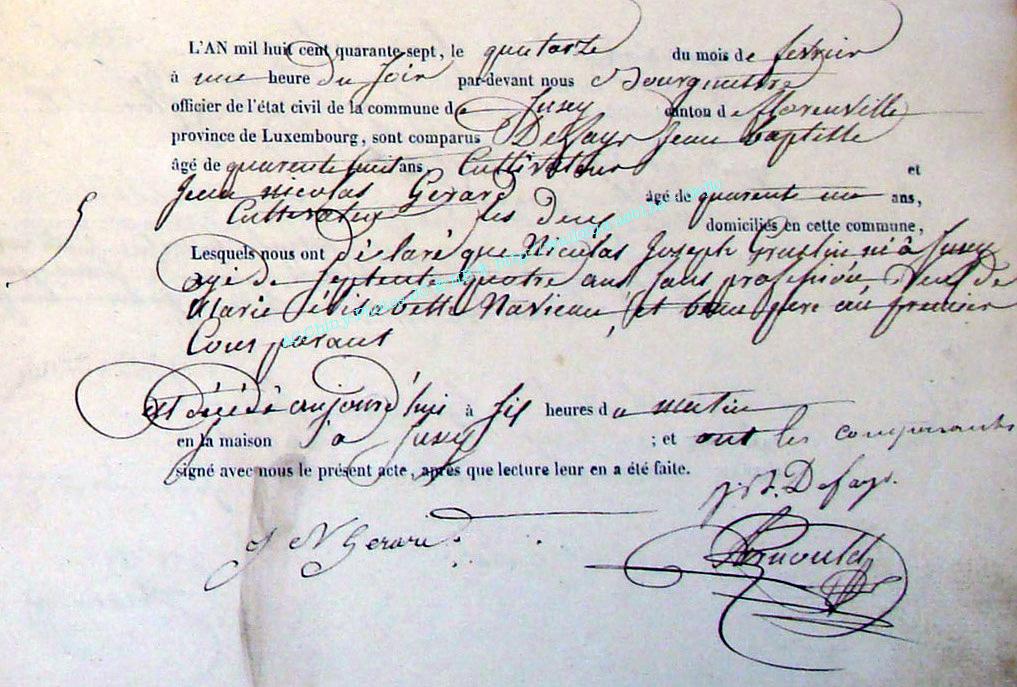 L'AN mil huit cent quarante-sept, le quatorze du mois de fevrier
à une heure du soir par-devant nous Bourgmestre
officier de l'état civil de la commune de Jusey canton de florenville
province de Luxembourg, sont comparus Defays Jean baptiste
âgé de quarente huit ans, Cultivateur et
Jean nicolas Gerard âgé de quarente un ans,
Cultivateur les deux domiciliés en cette commune,
Lesquels nous ont déclaré que Nicolas Joseph né à Jusey
agé de septente quatre ans sans profession veuf de
Marie élisabette et beau pere au premier
Comparant
est décédé aujourd'hui à six heures du matin
en la maison à Jusey ; et ont les comparants
signé avec nous le présent acte, après que lecture leur en a été faite.
J. B. Defays.
J N Gerard.
Arnould